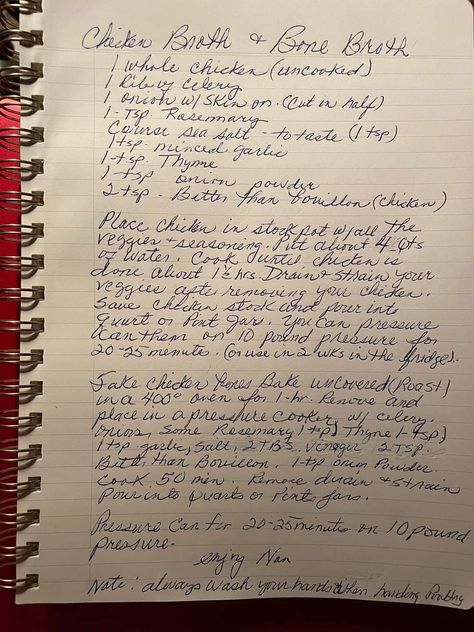 Chicken Broth & Bone Broth
1 whole chicken (uncooked)
1 Rib of Celery
1 onion w/skin on (Cut in half)
1-Tsp. Rosemary
Course sea salt - to taste (1 tsp)
1 tsp minced garlic
1-tsp. Thyme
1-tsp onion powder
2 tsp - Bitter than bouillon (chicken)
Place chicken in stock pot w/all the
veggies + seasoning. Put about 4 qts
of water. Cook until chicken is
done about 1 1/2 hrs Drain & strain your
veggies after removing your chicken.
Save chicken stock and pour into
Quart or Pint Jars. You can pressure
can them on 10 pound pressure for
20-25 minute. (or use in 2 wks in the fridge).
Take chicken bones Bake uncovered (Roast)
in a 400° oven for 1-hr. Remove and
place in a pressure cooker w/ celery.
Onion, Some Rosemary 1 tsp) Thyme 1-tsp)
1 tsp garlic, Salt, 2 TBS. Vinegar 2 TSP.
Bitter than Bouillon. 1-tsp onion Powder.
Cook 50 min. Remove drain & strain
Pour into Quarts or Pints Jars.
Pressure Can for 20-25 minutes on 10 pound
pressure.
enjoy Nan
Note: always wash your hands when handing Poultry